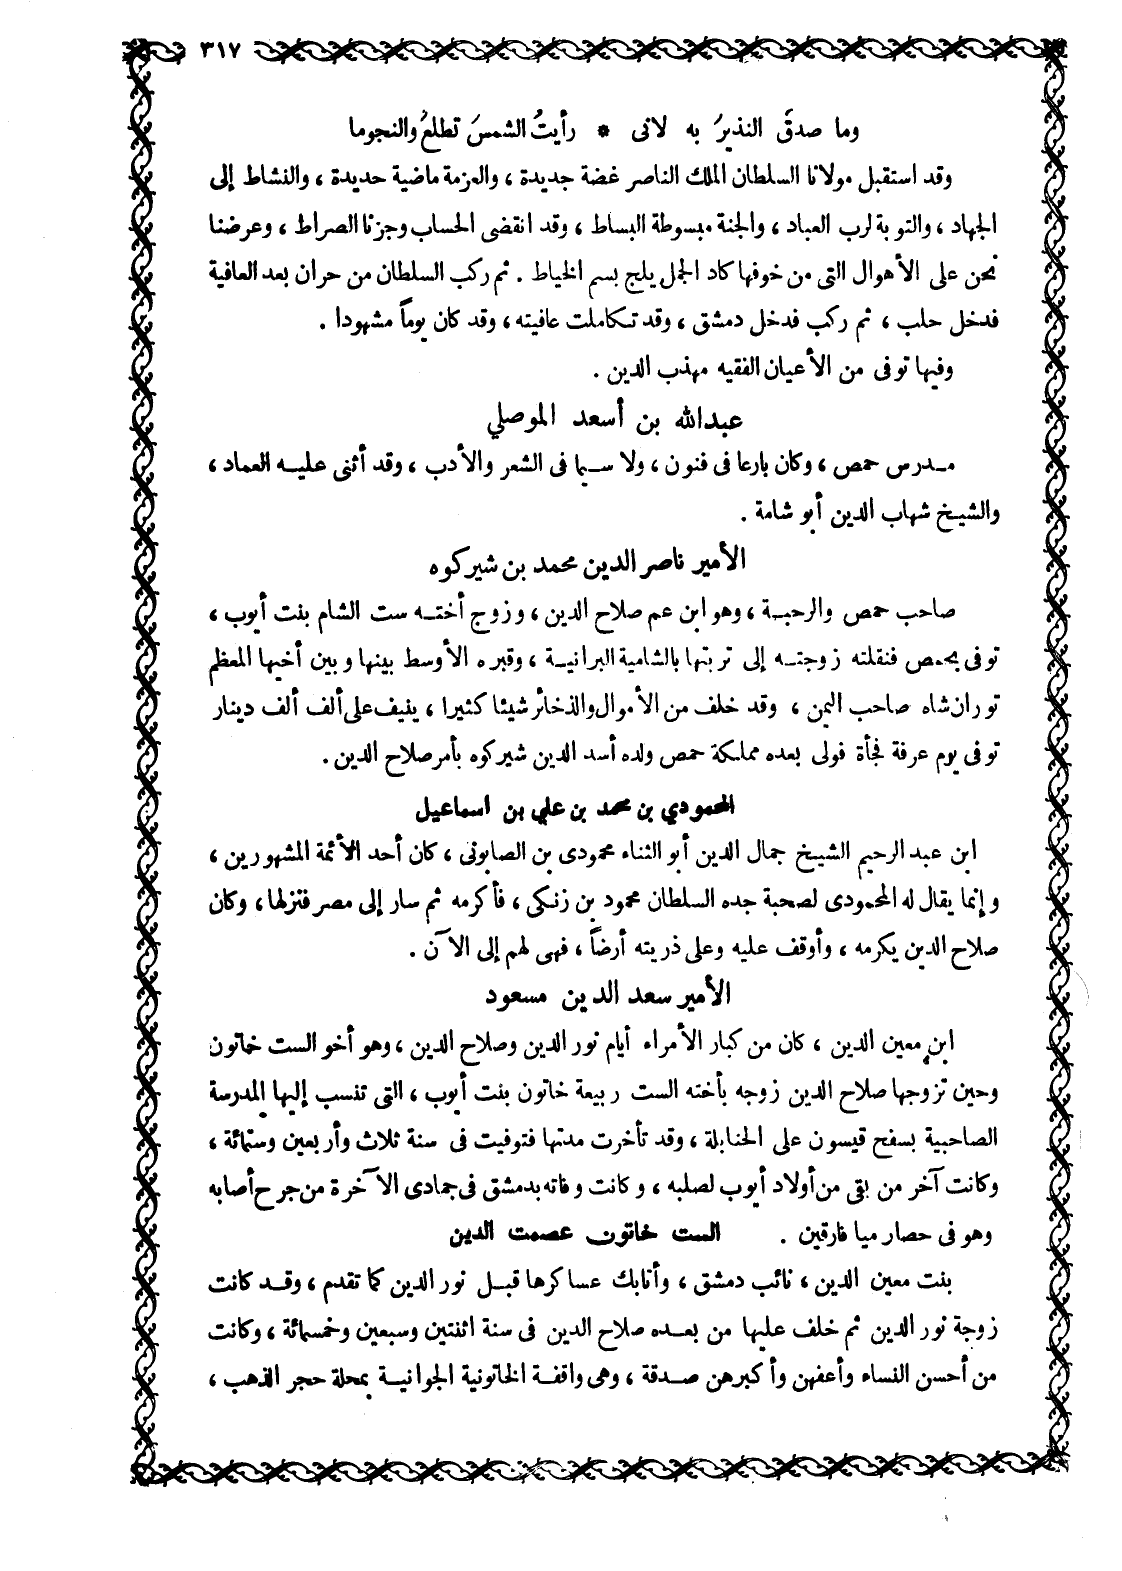 ٣١٧
وما صدقَ النذيرُ به لانى * رأيتُ الشمسَ تطلعُ والنجوما
وقد استقبل مولانا السلطان الملك الناصر غضة جديدة ، والعزمة ماضية حديدة ، والنشاط إلى
الجهاد ، والتوبة لرب العباد ، والجنة مبسوطة البساط ، وقد انقضى الحساب وجزنا الصراط ، وعرضنا
نحن على الأهوال التى من خوفها كاد الجمل يلج بسم الخياط . ثم ركب السلطان من حران بعد العافية
فدخل حلب ، ثم ركب فدخل دمشق ، وقد تكاملت عافيته ، وقد كان يوماً مشهودا .
وفيها توفى من الأعيان الفقيه مهذب الدين .
عبدالله بن أسعد الموصلي
مدرس حمص ، وكان بارعا فى فنون ، ولا سيما فى الشعر والأدب ، وقد أثنى عليه العماد ،
والشيخ شهاب الدين أبو شامة .
الأمير ناصر الدين محمد بن شيركوه
صاحب حمص والرحبة ، وهو ابن عم صلاح الدين ، وزوج أخته ست الشام بنت أيوب ،
توفى بحمص فنقلته زوجته إلى تربتها بالشامية البرانية ، وقبره الأوسط بينها وبين أخيها المعظم
توران شاه صاحب اليمن ، وقد خلف من الأموال والذخائر شيئا كثيرا ، ينيف على ألف ألف دينار
توفى يوم عرفة فجأة فولى بعده مملكة حمص ولده أسد الدين شيركوه بأمر صلاح الدين .
المحمودي بن محمد بن علي بن اسماعيل
ابن عبد الرحيم الشيخ جمال الدين أبو الثناء محمودى بن الصابونى ، كان أحد الأئمة المشهورين ،
وإنما يقال له المحمودى لصحبة جده السلطان محمود بن زنكى ، فأكرمه ثم سار إلى مصر فنزلها ، وكان
صلاح الدين يكرمه ، وأوقف عليه وعلى ذريته أرضاً ، فهى لهم إلى الآن .
الأمير سعد الدين مسعود
ابن معين الدين ، كان من كبار الأمراء أيام نور الدين وصلاح الدين ، وهو أخو الست خاتون
وحين تزوجها صلاح الدين زوجه بأخته الست ربيعة خاتون بنت أيوب ، التى تنسب إليها المدرسة
الصاحبية بسفح قيسون على الحنابلة ، وقد تأخرت مدتها فتوفيت فى سنة ثلاث وأربعين وستمائة ،
وكانت آخر من بقى من أولاد أيوب لصلبه ، وكانت وفاته بدمشق فى جمادى الآخرة من جرح أصابه
وهو فى حصار ميا فارقين . الست خاتون عصمت الدين
بنت معين الدين ، نائب دمشق ، وأتابك عساكرها قبل نور الدين كما تقدم ، وقد كانت
زوجة نور الدين ثم خلف عليها من بعده صلاح الدين فى سنة اثنتين وسبعين وخمسمائة ، وكانت
من أحسن النساء وأعفهن وأكبرهن صدقة ، وهى واقفة الخاتونية الجوانية بمحلة حجر الذهب ،